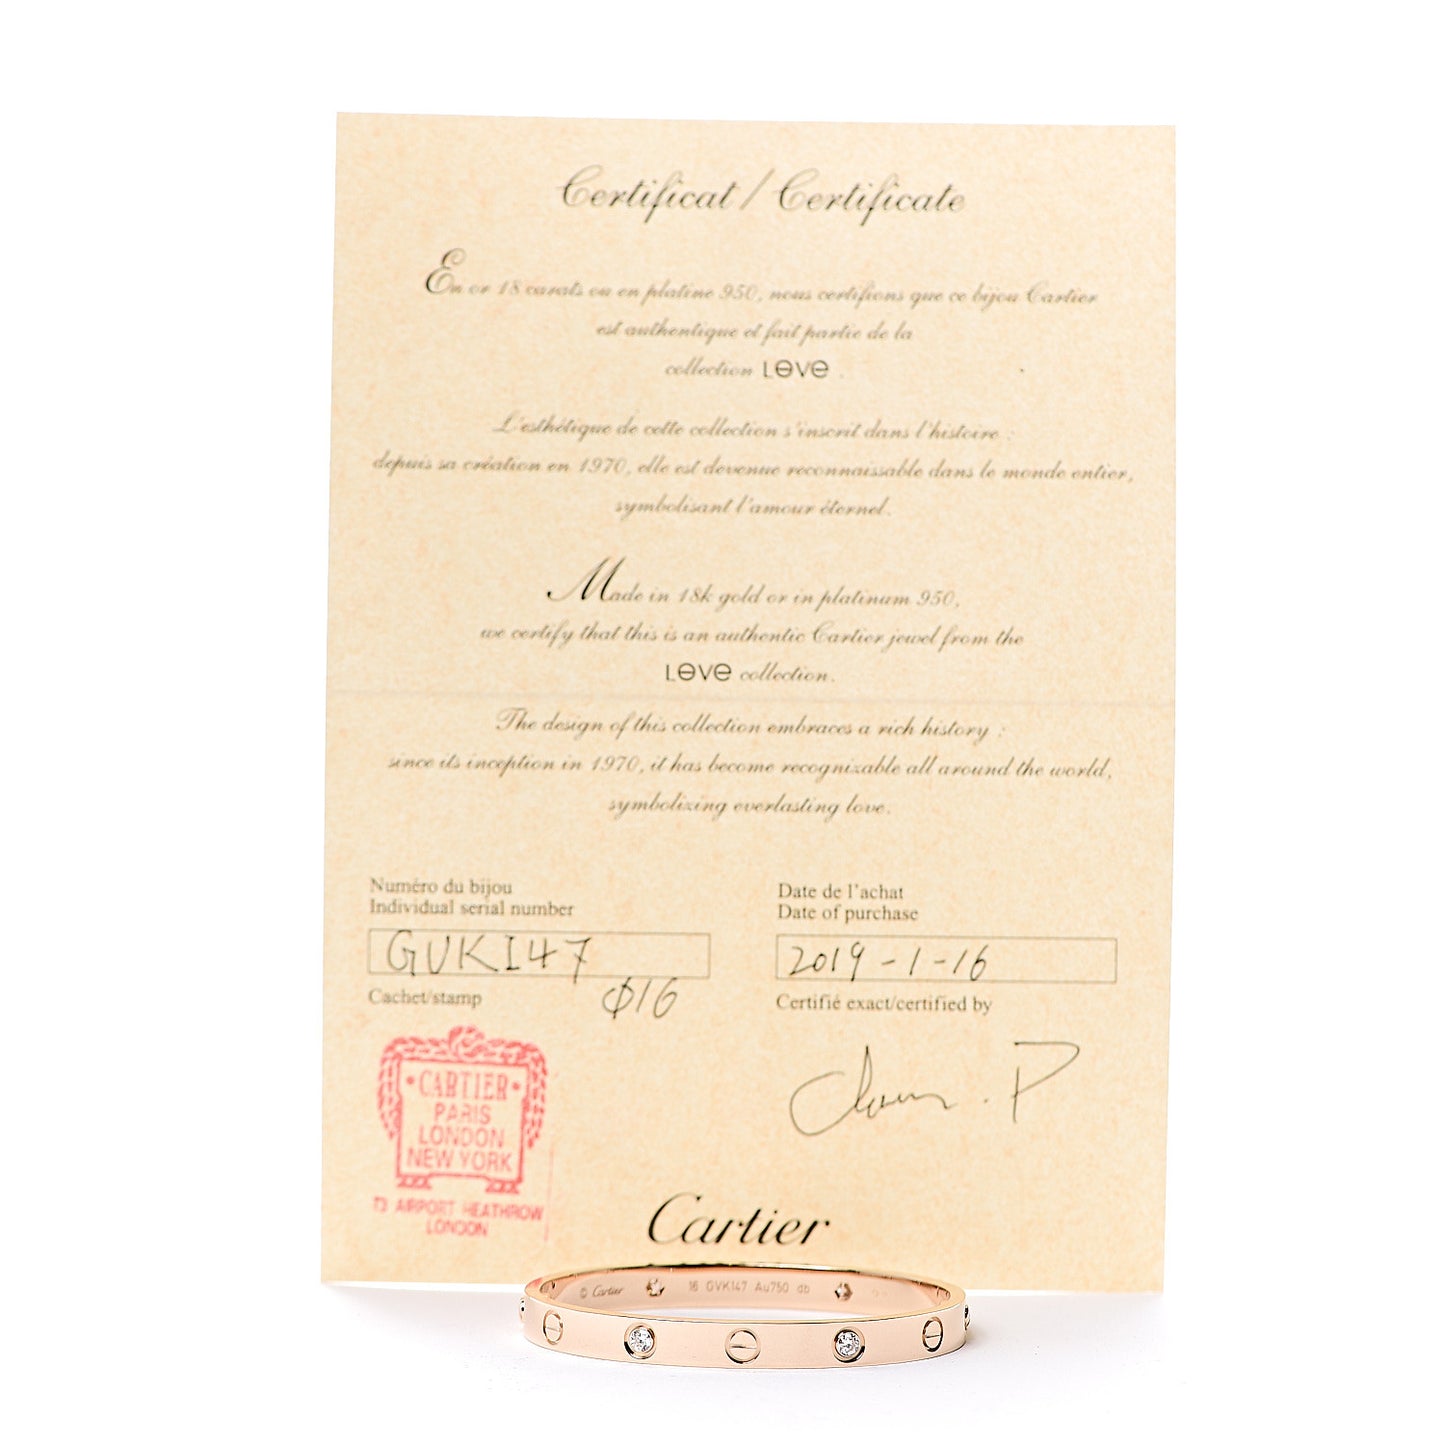 Certificat / Certificate
En or 18 carats ou en platine 950, nous certifions que ce bijou Cartier
est authentique et fait partie de la
collection LOVE .
L'esthétique de cette collection s'inscrit dans l'histoire :
depuis sa création en 1970, elle est devenue reconnaissable dans le monde entier,
symbolisant l'amour éternel.
Made in 18k gold or in platinum 950,
we certify that this is an authentic Cartier jewel from the
LOVE collection.
The design of this collection embraces a rich history :
since its inception in 1970, it has become recognizable all around the world,
symbolizing everlasting love.
Numéro du bijou
Individual serial number
GUKI47
Ø16
Date de l'achat
Date of purchase
2019-1-16
Cachet/stamp
Certifié exact/certified by
CARTIER
PARIS
LONDON
NEW YORK
T3 AIRPORT HEATHROW
LONDON
Cartier
© Cartier 16 GVK147 Au750 db